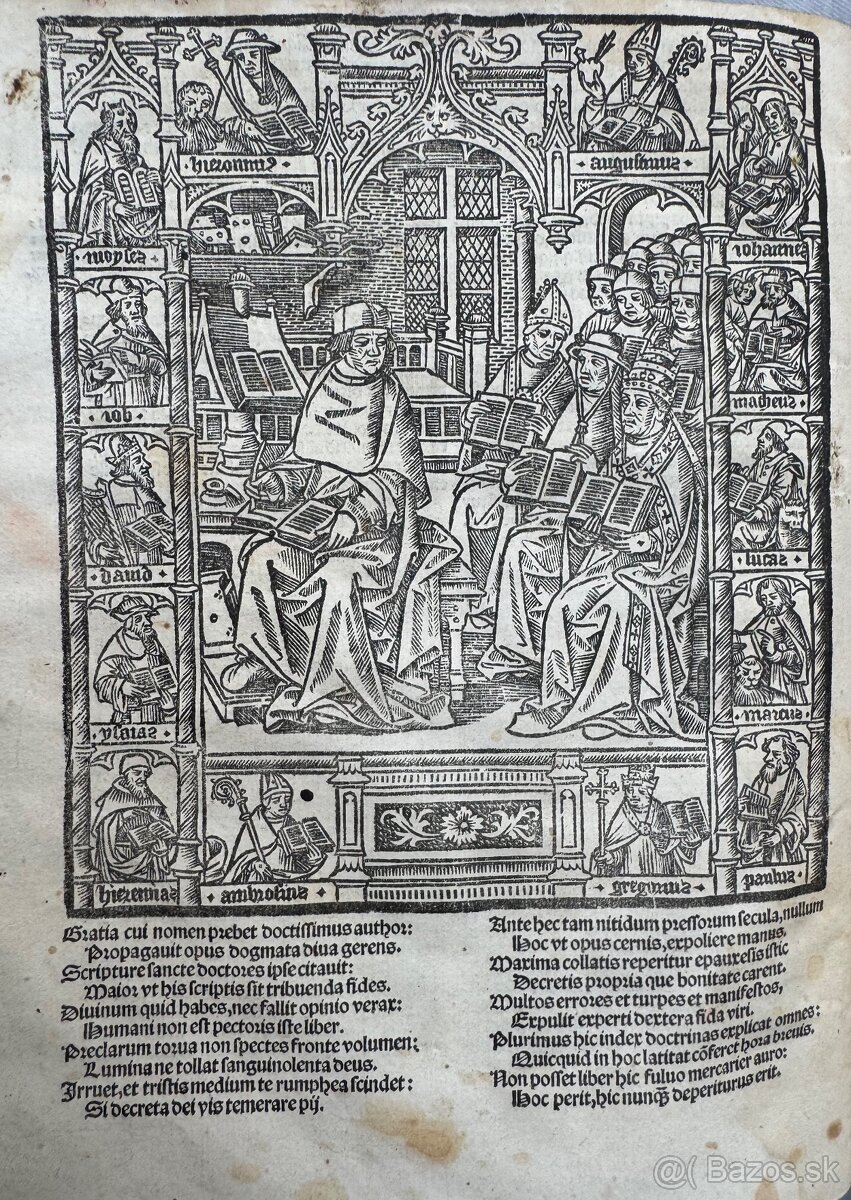 hieronimꝰ
augustinus
moyses
iohannes
iob
matheus
dauid
lucas
ysaias
marcus
hieremias
ambrosius
gregorius
paulus
Gratia cui nomen prebet doctissimus author:
Propagauit opus dogmata diua gerens.
Scripture sancte doctores ipse citauit:
Maior vt his scriptis sit tribuenda fides.
Diuinum quid habes, nec fallit opinio verax:
Humani non est pectoris iste liber.
Preclarum torua non spectes fronte volumen:
Lumina ne tollat sanguinolenta deus.
Irruet, et tristis medium te rumphea scindet:
Si decreta dei vis temerare pij.
Ante hec tam nitidum pressorum secula, nullum
Hoc vt opus cernis, expoliere manus.
Maxima collatis reperitur epauxesis istic
Decretis propria que bonitate carent.
Multos errores et turpes et manifestos,
Expulit experti dextera fida viri.
Plurimus hic index doctrinas explicat omnes:
Quicquid in hoc latitat cõferet hora breuis.
Non posset liber hic fuluo mercarier auro:
Hoc perit, hic nunꝙ̃ deperiturus erit.
Bazos.sk